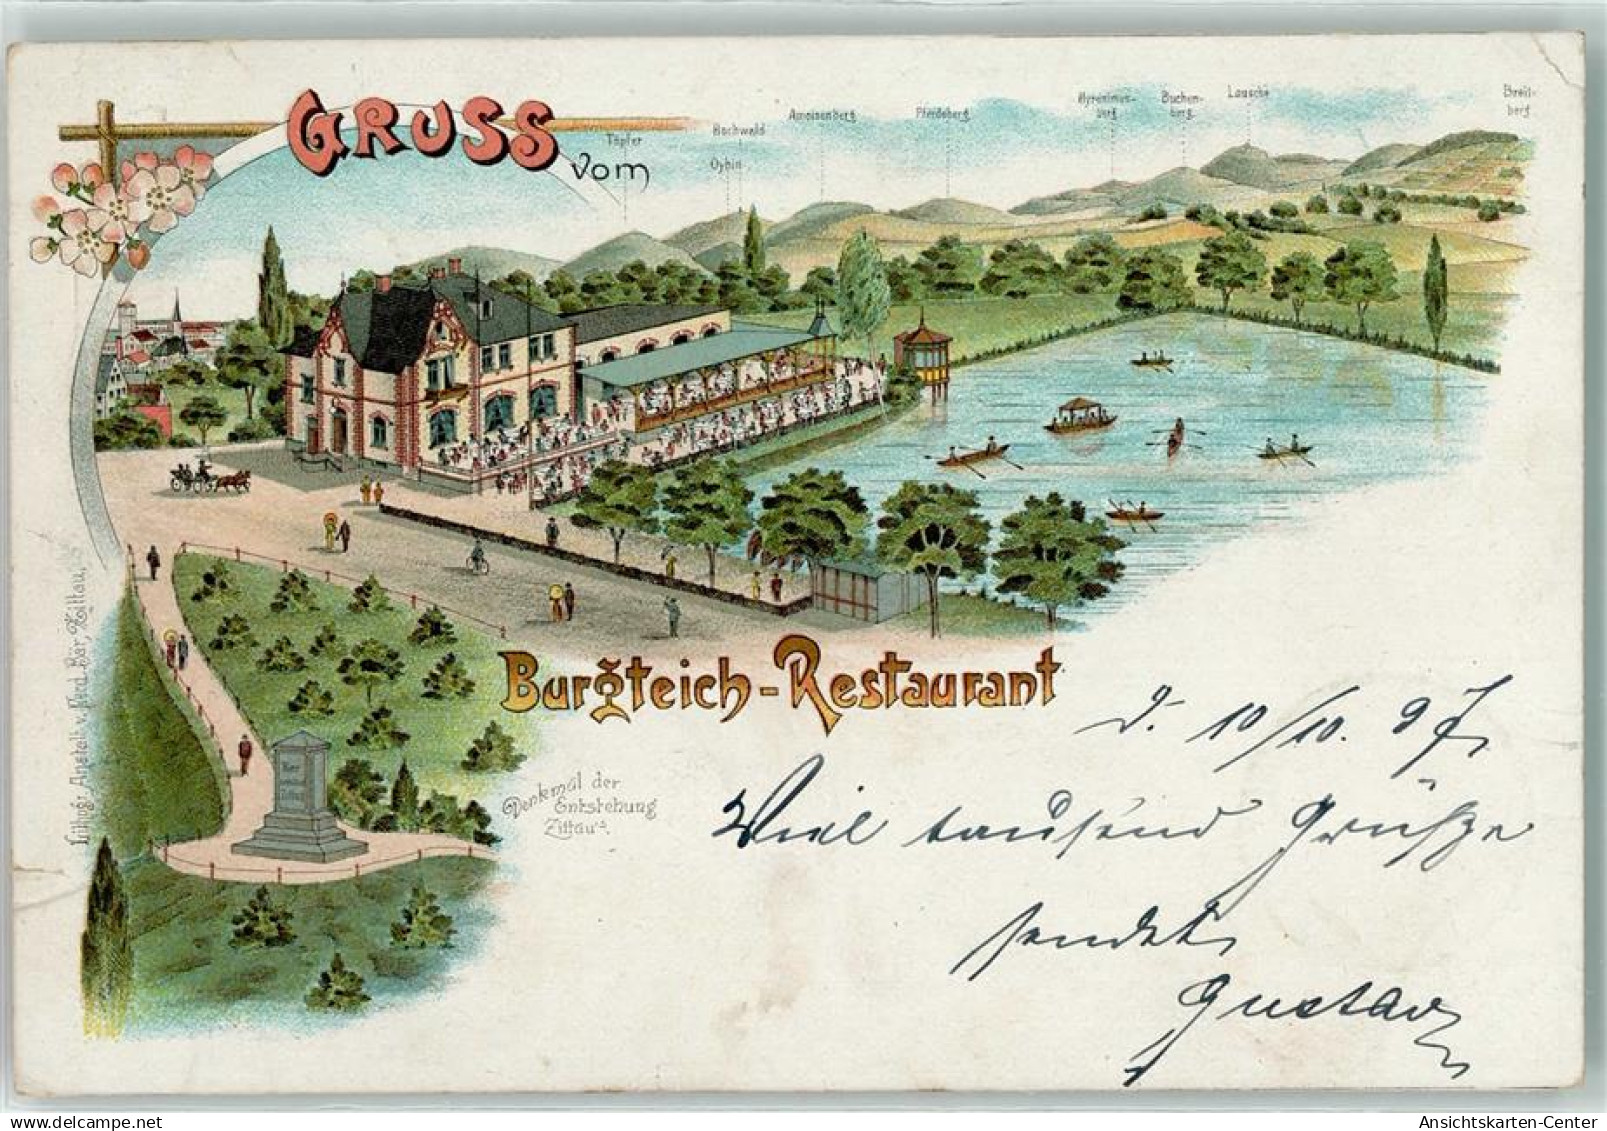 GRUSS
vom
Töpfer
Hochwald
Oybin
Ameisenberg
Pferdeberg
Buchen-
berg
Lausche
Breit-
berg
Burgteich-Restaurant
Denkmal der
Entstehung
Zittau's.
Lithogr. Anstalt v. Ferd. Bär, Zittau,
Hier
Zittau
d. 10/10. 97
Viel tausend Grüße
sendet
Gustav
Ansichtskarten-Center